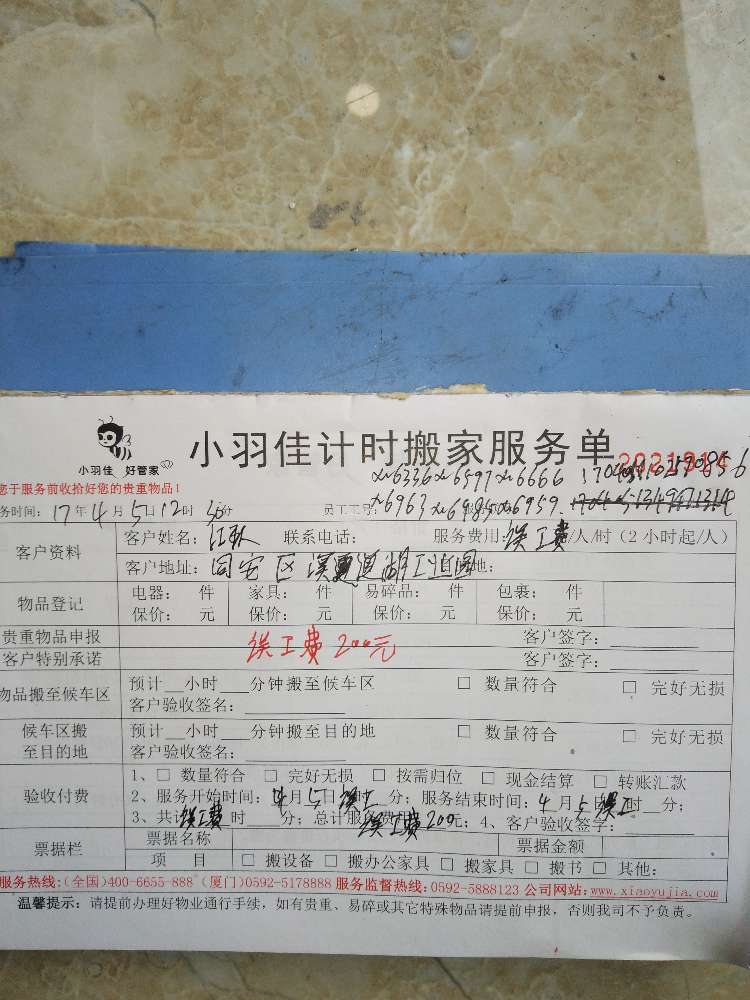 小羽佳 好管家
小羽佳计时搬家服务单
您于服务前收拾好您的贵重物品！
xm6336 xm6597 xm6666
务时间：17年4月5日12时30分 员工工号： xm6963 xm6985 xm6959
客户资料
客户姓名：江队 联系电话： 服务费用：误工费/人/时（2小时起/人）
客户地址：同安区
物品登记
电器： 件 家具： 件 易碎品： 件 包裹： 件
保价： 元 保价： 元 保价： 元 保价： 元
贵重物品申报 客户签字：
误工费200元
客户特别承诺 客户签字：
物品搬至候车区
预计 小时 分钟搬至候车区 □ 数量符合 □ 完好无损
客户验收签名：
候车区搬至目的地
预计 小时 分钟搬至目的地 □ 数量符合 □ 完好无损
客户验收签名：
验收付费
1、□ 数量符合 □ 完好无损 □ 按需归位 □ 现金结算 □ 转账汇款
2、服务开始时间：4月5日误工时 分；服务结束时间：4月5日误工时 分；
3、共计误工费时 分；总计服务费用误工费200元；4、客户验收签字：
票据栏
票据名称 票据金额
项 目 □ 搬设备 □ 搬办公家具 □ 搬家具 □ 搬书 □ 其他：
服务热线：(全国)400-6655-888 (厦门)0592-5178888 服务监督热线：0592-5888123 公司网站：www.xiaoyujia.com
温馨提示：请提前办理好物业通行手续，如有贵重、易碎或其它特殊物品请提前申报，否则我司不予负责。